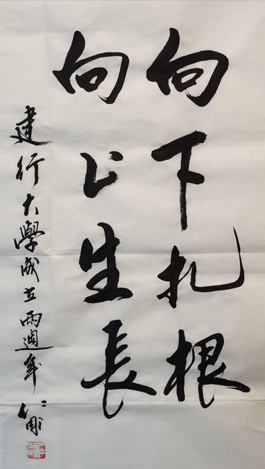 向下扎根
向上生長
建行大學成立兩週年